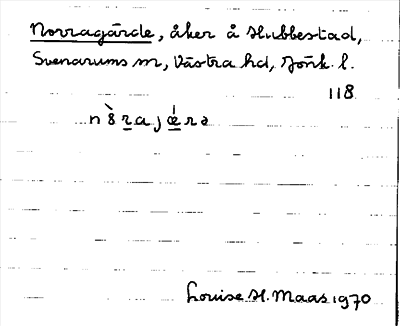 Norragärde, åker å Hubbestad,
Svenarums sn, Västra hd, Jönk. l.
118
nò̀ra jǽrə
Louise H. Maas 1970